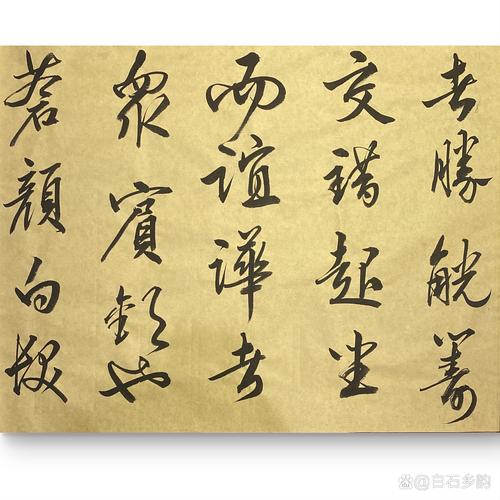 者勝觥籌
交錯起坐
而諠譁者
衆賓歡也
蒼顔白髮
@白石乡韵